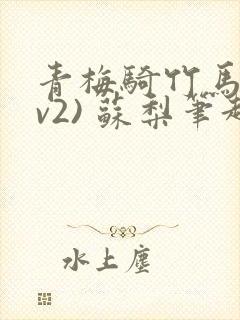 青梅騎竹馬
v2) 蘇梨筆趣
水上塵